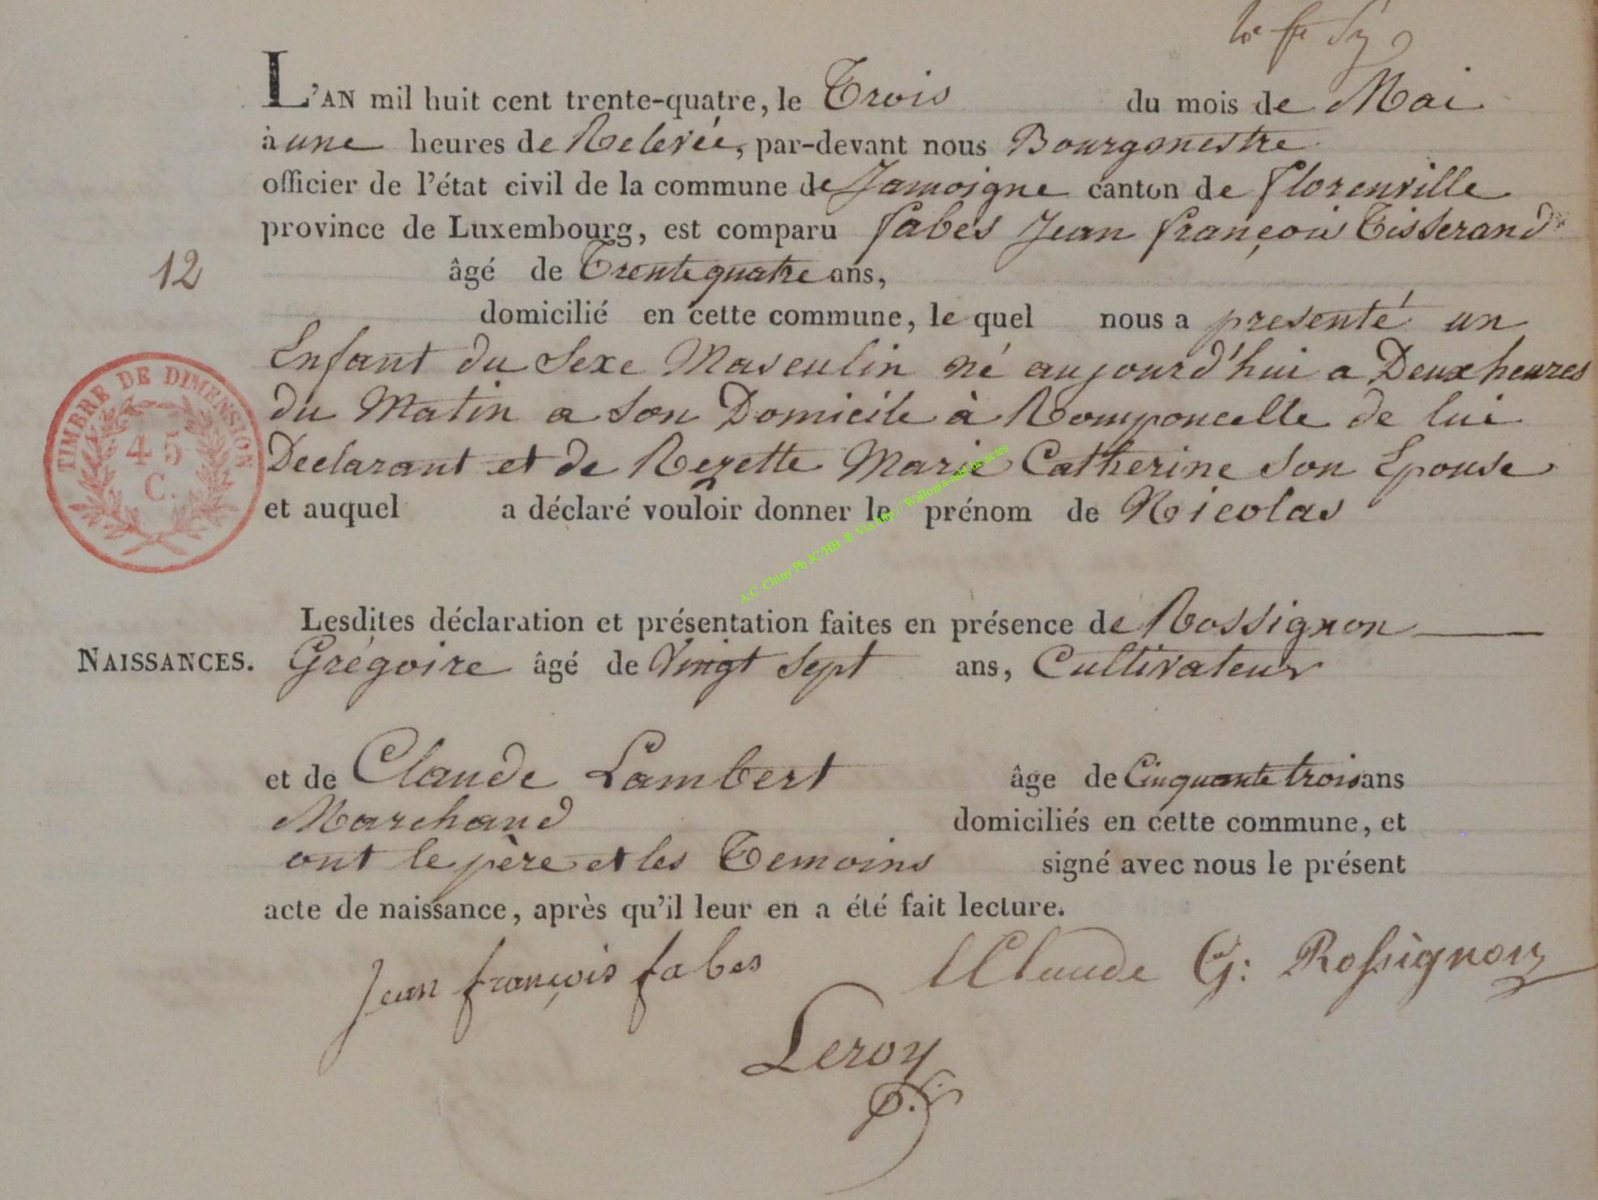 L'AN mil huit cent trente-quatre, le Trois du mois de Mai
à une heures de Relevée, par-devant nous Bourgmestre
officier de l'état civil de la commune de Jamoigne canton de florenville
province de Luxembourg, est comparu fabes Jean françois Tisserand
12
âgé de Trente quatre ans,
domicilié en cette commune, le quel nous a presenté un
Enfant du Sexe Masculin né aujourd'hui a Deux heures
du Matin a Son Domicile à Romponcelle de lui
Declarant et de Rezette Marie Catherine Son Epouse
et auquel a déclaré vouloir donner le prénom de Nicolas
TIMBRE DE DIMENSION
45
C.
A.C. Chiny Ph JC/HB & Via
Lesdites déclaration et présentation faites en présence de Rossignon
NAISSANCES. Grégoire âgé de Vingt Sept ans, Cultivateur
et de Claude Lambert âge de Cinquante trois ans
Marchand domiciliés en cette commune, et
ont le père et les Temoins signé avec nous le présent
acte de naissance, après qu'il leur en a été fait lecture.
Jean françois fabes LClaude G: Rossignon
Leroy